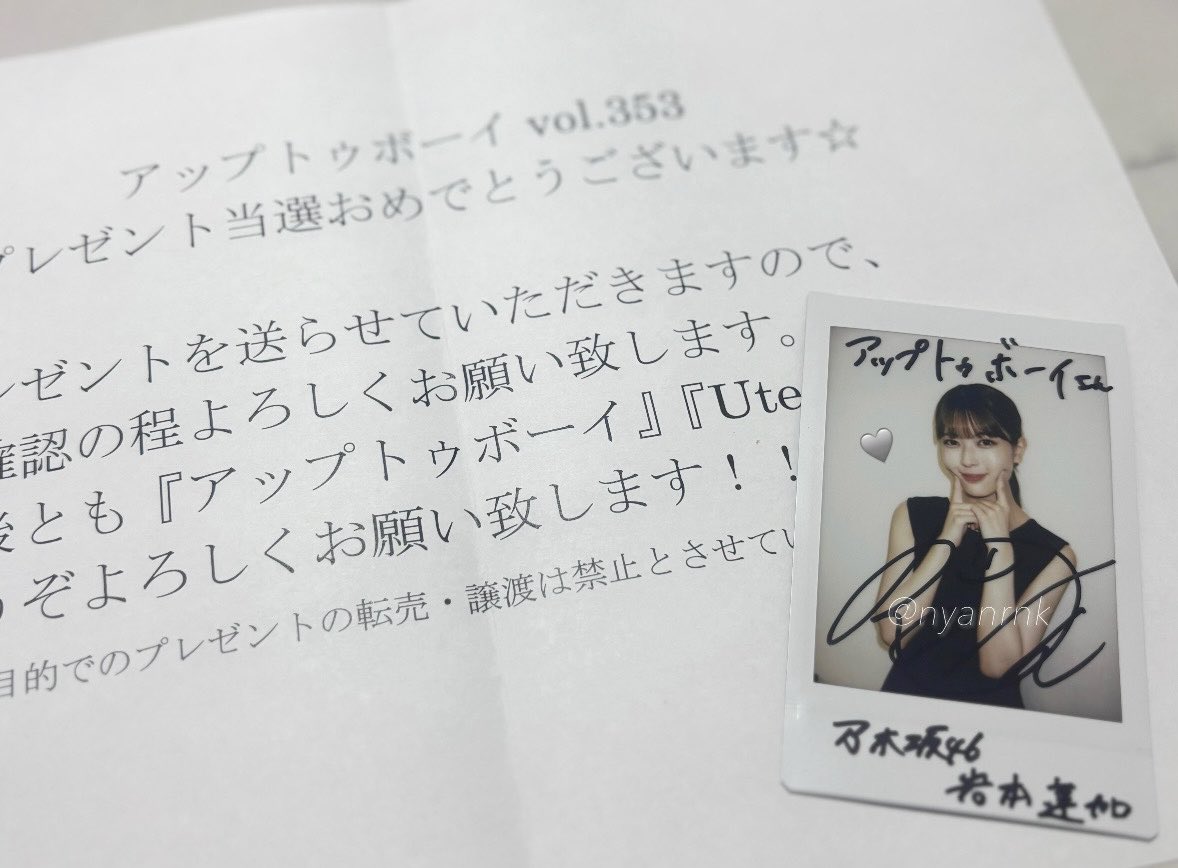 アップトゥボーイ vol.353
プレゼント当選おめでとうございます☆
レゼントを送らせていただきますので、
確認の程よろしくお願い致します。
後とも『アップトゥボーイ』『Ute
うぞよろしくお願い致します！！
目的でのプレゼントの転売・譲渡は禁止とさせてい
アップトゥボーイさん
@nyanrnk
乃木坂46
岩本蓮加